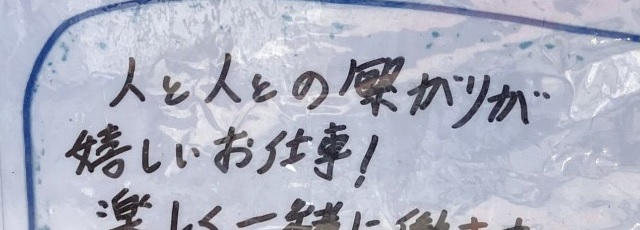 人と人との繋がりが
嬉しいお仕事!
楽しく一緒に働きま